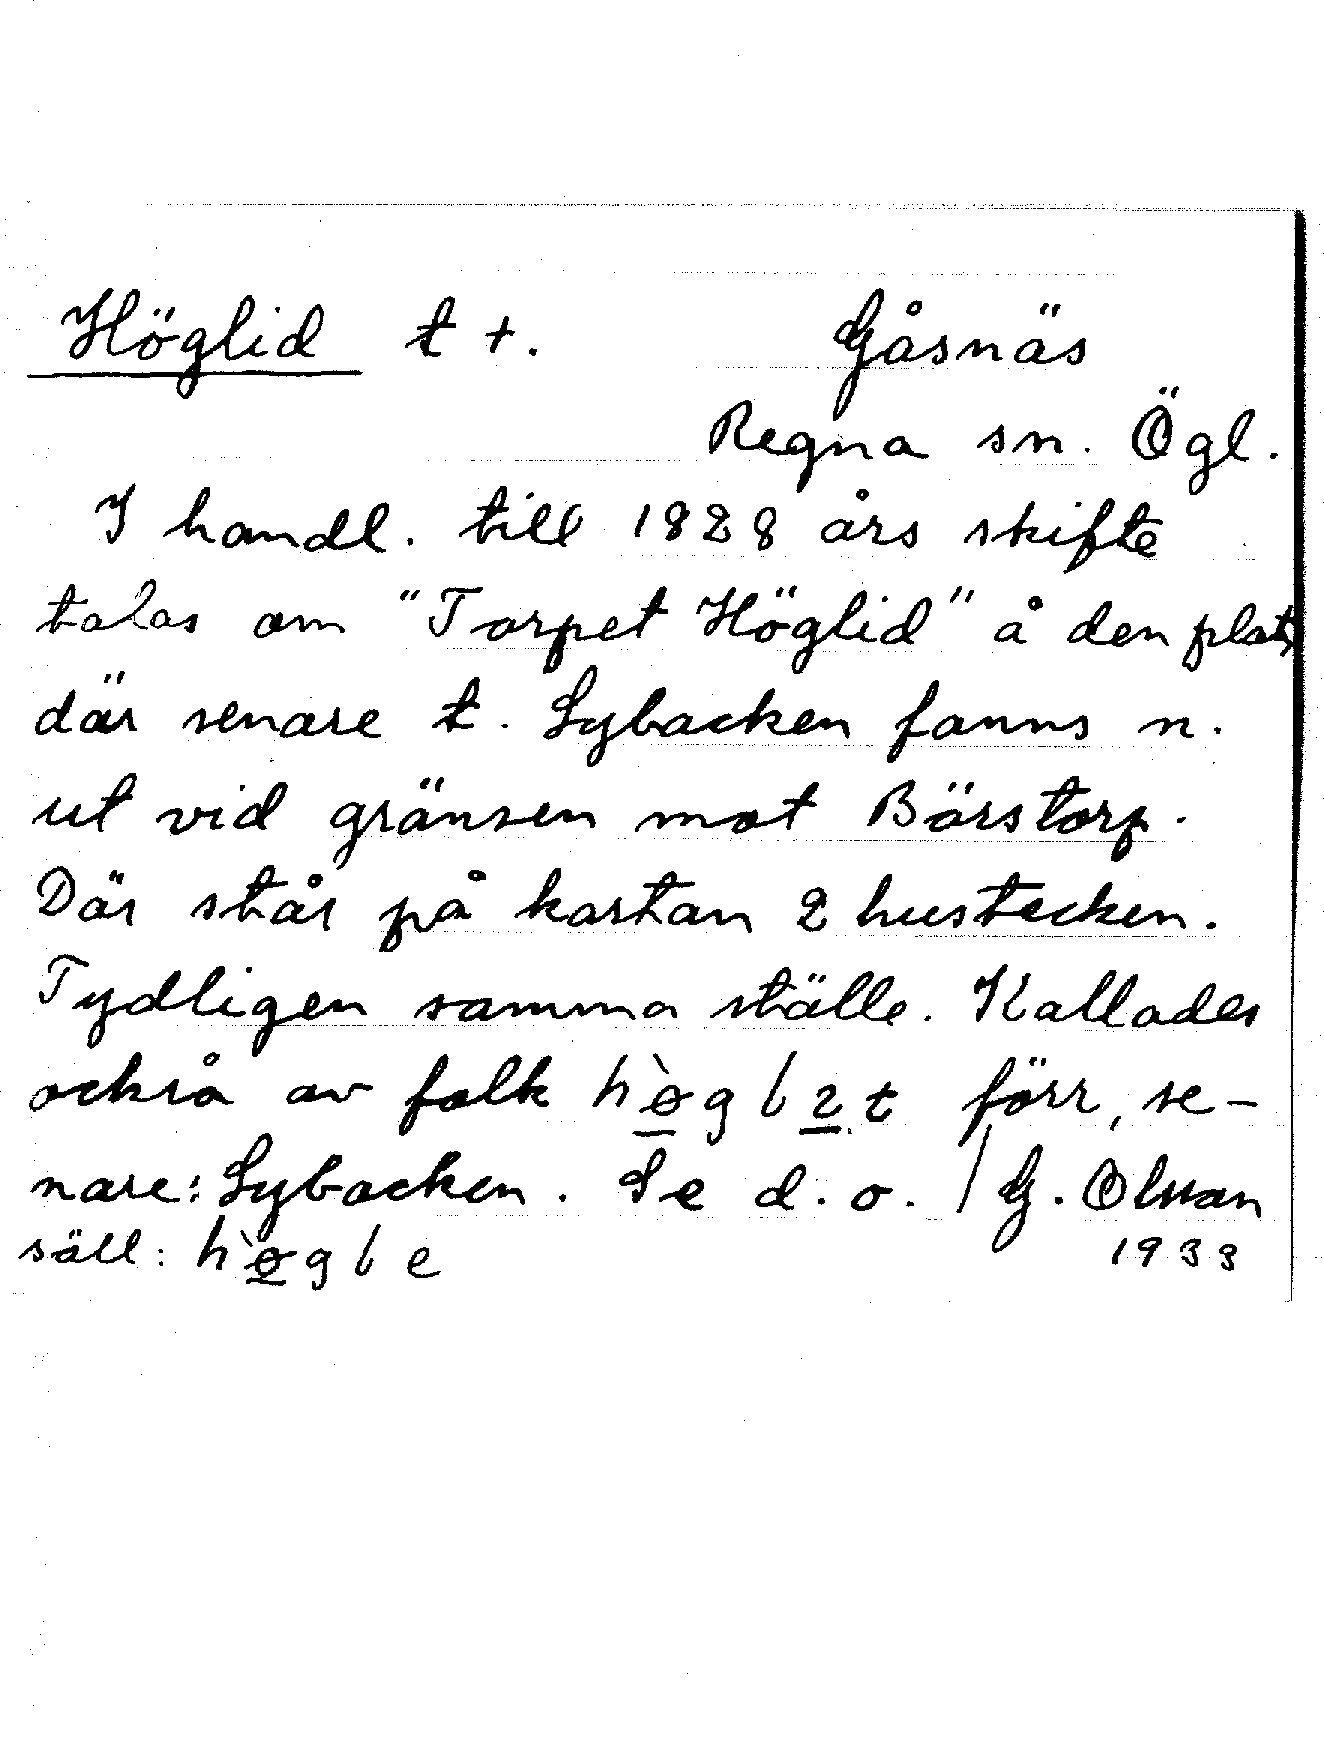 Höglid t +. Gåsnäs
Regna sn. Ögl.
I handl. till 1828 års skifte
talas om "Torpet Höglid" å den plats
där senare t. Sybacken fanns n.
ut vid gränsen mot Börstorp.
Där står på kartan 2 hustecken.
Tydligen samma ställe. Kallades
också av folk förr, se-
nare: Sybacken. Se d. o. / G. Olsson
säll: 1933